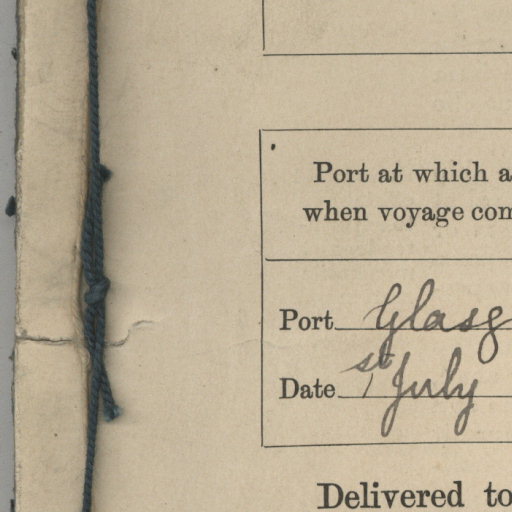 Port at which a
when voyage com
Port Glasg
Date 1st July
Delivered to